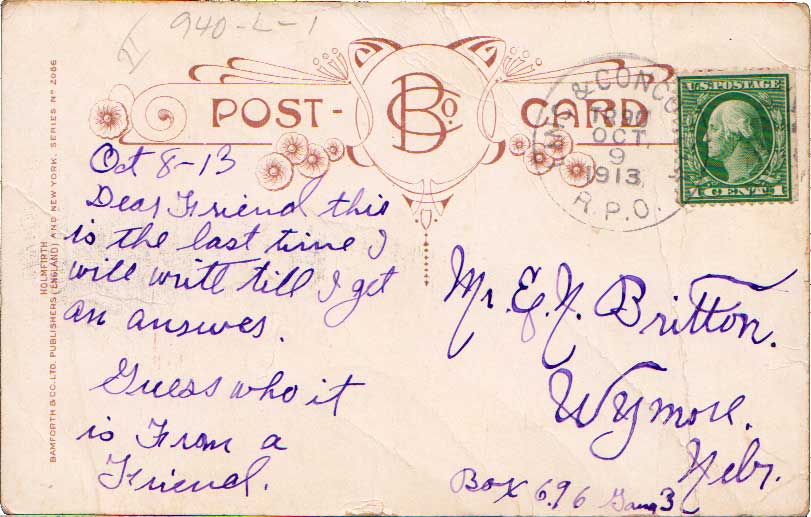 940-L-1
POST- B Co. CARD
& CONCO
TR 90
OCT
9
1913
R.P.O.
U.S. POSTAGE
1 CENTS 1
HOLMFIRTH
BAMFORTH & CO. LTD. PUBLISHERS (ENGLAND) AND NEW YORK. SERIES Nº 2086
Oct 8-13
Dear Friend this
is the last time I
will writt till I get
an answer.
Guess who it
is From a
Friend.
Mr. E. N. Britton.
Wymore.
Nebr.
Box 696 Gang 3